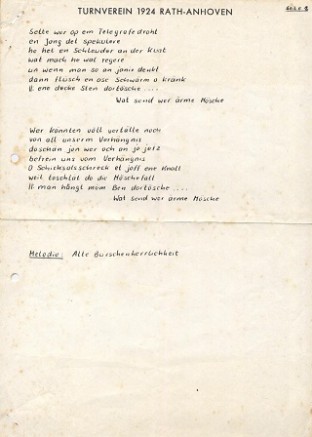 TURNVEREIN 1924 RATH-ANHOVEN
Sette wer op em Telegrafedroht
en jong det spekulere
he het en Schleuder an der Kust
wat mach he wal regere
un wenn man so an jonir denkt
dann flusch en ose Schwarm o krank
ene decke Sten dortösche ....
Wat send wer ärme Mösche
Wer konnten völl vertälle noch
von all unserm Verhängnis
doschon jon wer och an je jetz
befrein uns vom Verhängnis
O Schicksalsschreck et joff ene Knall
weil teschlüt do die Möschefall
man hängt mam Ben dortösche ....
Wat send wer ärme Mösche
Melodie: Alte Burschenherrlichkeit